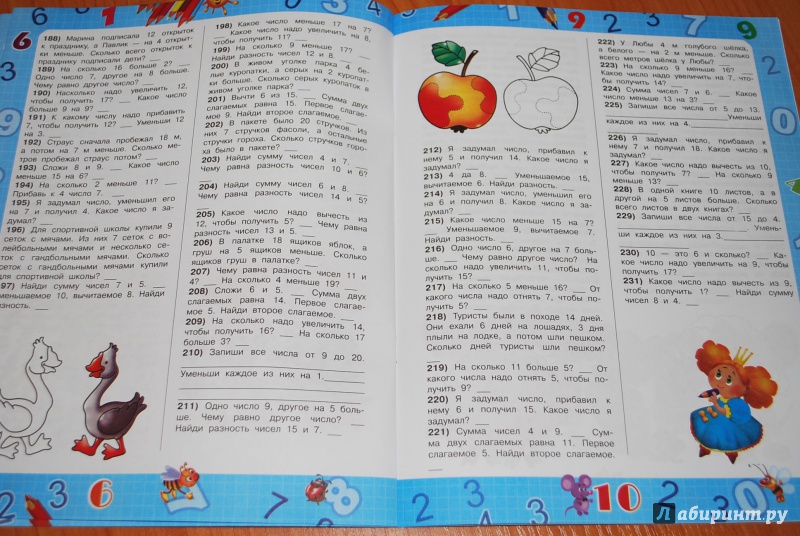 188) Марина подписала 12 открыток
к празднику, а Павлик — на 4 открыт-
ки меньше. Сколько всего открыток к
празднику подписали дети?
189) На сколько 16 больше 2?
Одно число 7, другое на 8 больше.
Чему равно другое число?
190) Насколько надо увеличить 12,
чтобы получить 17? Какое число
больше 9 на 9?
191) К какому числу надо прибавить
7, чтобы получить 12? Уменьши 12
на 3.
192) Страус сначала пробежал 18 м,
а потом на 7 м меньше. Сколько ме-
тров пробежал страус потом?
193) Сложи 8 и 9. Какое число
меньше 15 на 6?
194) На сколько 2 меньше 11?
Прибавь к 4 число 7.
195) Я задумал число, уменьшил его
на 7 и получил 4. Какое число я за-
думал?
196) Для спортивной школы купили 9
сеток с мячами. Из них 7 сеток с во-
лейбольными мячами и несколько се-
ток с гандбольными мячами. Сколько
сеток с гандбольными мячами купили
для спортивной школы?
97) Найди сумму чисел 7 и 5.
меньшаемое 10, вычитаемое 8. Найди
разность.
198) Какое число меньше 17 на 7?
Какое число надо увеличить на 8,
чтобы получить 11?
199) На сколько 9 меньше 17?
Найди разность чисел 12 и 8.
200) В живом уголке парка 4 бе-
лые куропатки, а серых на 2 куропат-
ки больше. Сколько серых куропаток в
живом уголке парка?
201) Вычти 6 из 15. Сумма двух
слагаемых равна 15. Первое слагае-
мое 9. Найди второе слагаемое.
202) В пакете было 20 стручков. Из
них 7 стручков фасоли, а остальные
стручки гороха. Сколько стручков горо-
ха было в пакете?
203) Найди сумму чисел 4 и 7.
Чему равна разность чисел 10 и 6?
204) Найди сумму чисел 6 и 8.
Чему равна разность чисел 14 и 5?
205) Какое число надо вычесть из
12, чтобы получить 5? Чему равна
разность чисел 13 и 5.
206) В палатке 18 ящиков яблок, а
груш на 5 ящиков меньше. Сколько
ящиков груш в палатке?
207) Чему равна разность чисел 11 и
4? На сколько 4 меньше 19?
208) Сложи 6 и 5. Сумма двух
слагаемых равна 14. Первое слагае-
мое 5. Найди второе слагаемое.
209) На сколько надо увеличить 14,
чтобы получить 16? На сколько 17
больше 3?
210) Запиши все числа от 9 до 20.
Уменьши каждое из них на 1.
211) Одно число 9, другое на 5 боль-
ше. Чему равно другое число?
Найди разность чисел 15 и 7.
212) Я задумал число, прибавил к
нему 5 и получил 14. Какое число я
задумал?
213) 4 да 8. Уменьшаемое 15,
вычитаемое 6. Найди разность.
214) Я задумал число, уменьшил его
на 6 и получил 8. Какое число я заду-
мал?
215) Какое число меньше 15 на 7?
Уменьшаемое 9, вычитаемое 7.
Найди разность.
216) Одно число 6, другое на 7 боль-
ше. Чему равно другое число? На
сколько надо увеличить 11, чтобы по-
лучить 15?
217) На сколько 5 меньше 16? От
какого числа надо отнять 7, чтобы по-
лучить 5?
218) Туристы были в походе 14 дней.
Они ехали 6 дней на лошадях, 3 дня
плыли на лодке, а потом шли пешком.
Сколько дней туристы шли пешком?
219) На сколько 11 больше 5? От
какого числа надо отнять 5, чтобы по-
лучить 9?
220) Я задумал число, прибавил к
нему 6 и получил 15. Какое число я
задумал?
221) Сумма чисел 4 и 9. Сум-
ма двух слагаемых равна 11. Первое
слагаемое 5. Найди второе слагаемое.
222) У Любы 4 м голубого шёлка,
а белого — на 2 м меньше. Сколько
всего метров шёлка у Любы?
223) На сколько 9 меньше 16?
Какое число надо увеличить на 7, что-
бы получить 14?
224) Сумма чисел 7 и 6. Какое
число меньше 13 на 3?
225) Запиши все числа от 5 до 13.
Уменьши
каждое из них на 4.
226) Я задумал число, прибавил к
нему 7 и получил 13. Какое число я
задумал?
227) Какое число надо вычесть из 10,
чтобы получить 7? На сколько 9
меньше 13?
228) В одной книге 10 листов, а в
другой на 5 листов больше. Сколько
всего листов в двух книгах?
229) Запиши все числа от 15 до 4.
Умень-
ши каждое из них на 3.
230) 10 — это 6 и сколько? Ка-
кое число надо увеличить на 9, чтобы
получить 17?
231) Какое число надо вычесть из 9,
чтобы получить 1? Найди сумму
чисел 8 и 4.
6
10
Лабиринт.ру